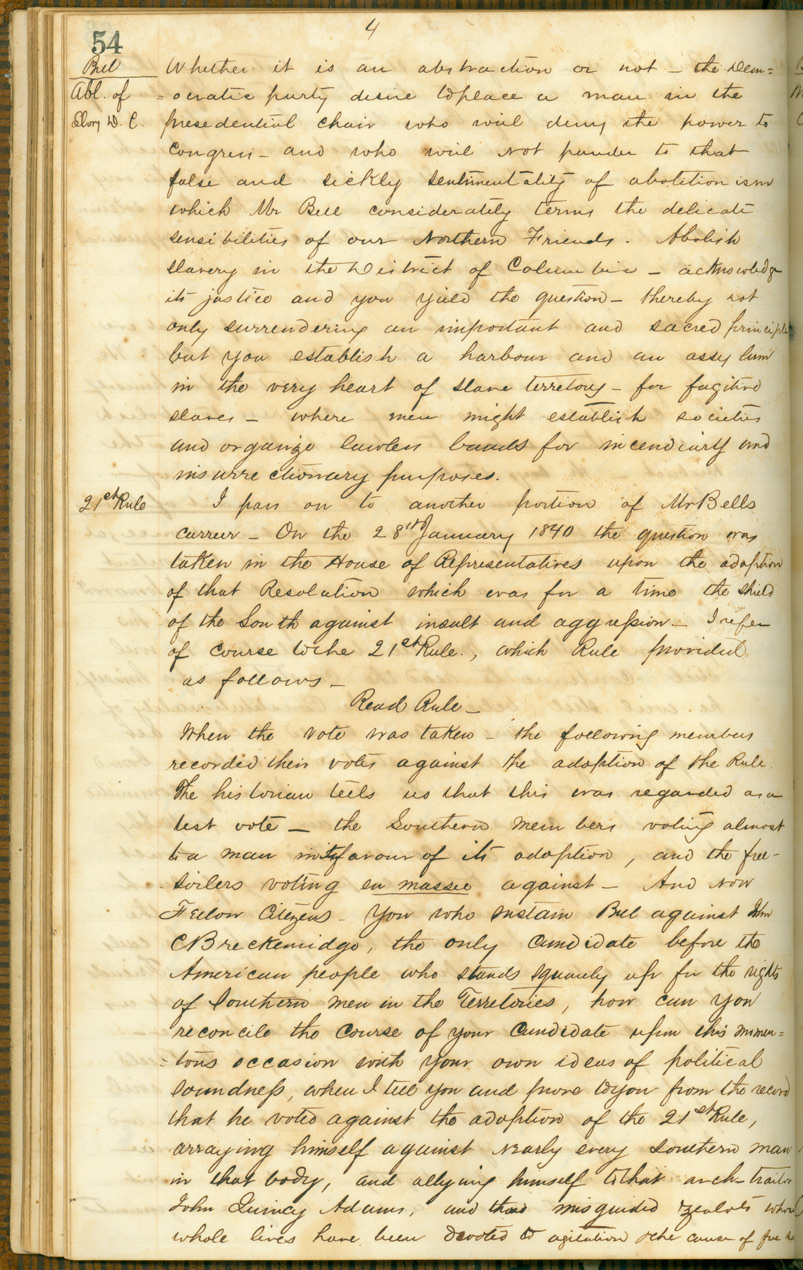 4
54
Bell
Abl. of
Slavy D. C.
Whether it is an abstraction or not – the Dem=
=ocratic party desire to place a man in the
presedential chair who will deny the power to
Congress – and who will not pander to that
false and sickly sentimentality of abolitionism
which Mr Bell considerately terms the delicate
sensibilities of our Northern Friends. Abolish
slavery in the District of Columbia – acknowledge
its justice and you yield the question – thereby not
only surrendering an important and sacred principle
but you establish a harbour and an assylum
in the very heart of slave terretory – for fugitive
slaves – where men might establish societies
and organize lawless bands for incendiary and
insurrectionary purposes.
21st Rule
I pass on to another portion of Mr Bells
carreer – On the 28th January 1840 the question was
taken in the House of Representatives upon the adoption
of that Resolution which was for a time the shield
of the South against insult and aggression – I refer
of course to the 21st Rule., which Rule provided
as follows –
Read Rule –
When the vote was taken – the following members
recorded their votes against the adoption of the Rule.
The historian tells us that this was regarded as a
test vote – the Southern members voting almost
to a man in favour of its adoption, and the free-
soilers voting en massee against – And now
Fellow Citizens – You who sustain Bell against John
C Breckenridge, the only candidate before the
American people who stands squarely up for the rights
of Southern men in the Territories, how can you
reconcile the course of your candidate upon this momen=
=tous occasion with your own ideas of political
soundness, when I tell you and prove to you from the record
that he voted against the adoption of the 21st Rule,
arraying himself against nearly every Southern man
in that body, and allying himself to that arch-traitor
John Quincy Adams, and misguided zealots whose
whole lives have been devoted to agitation & the cause of free